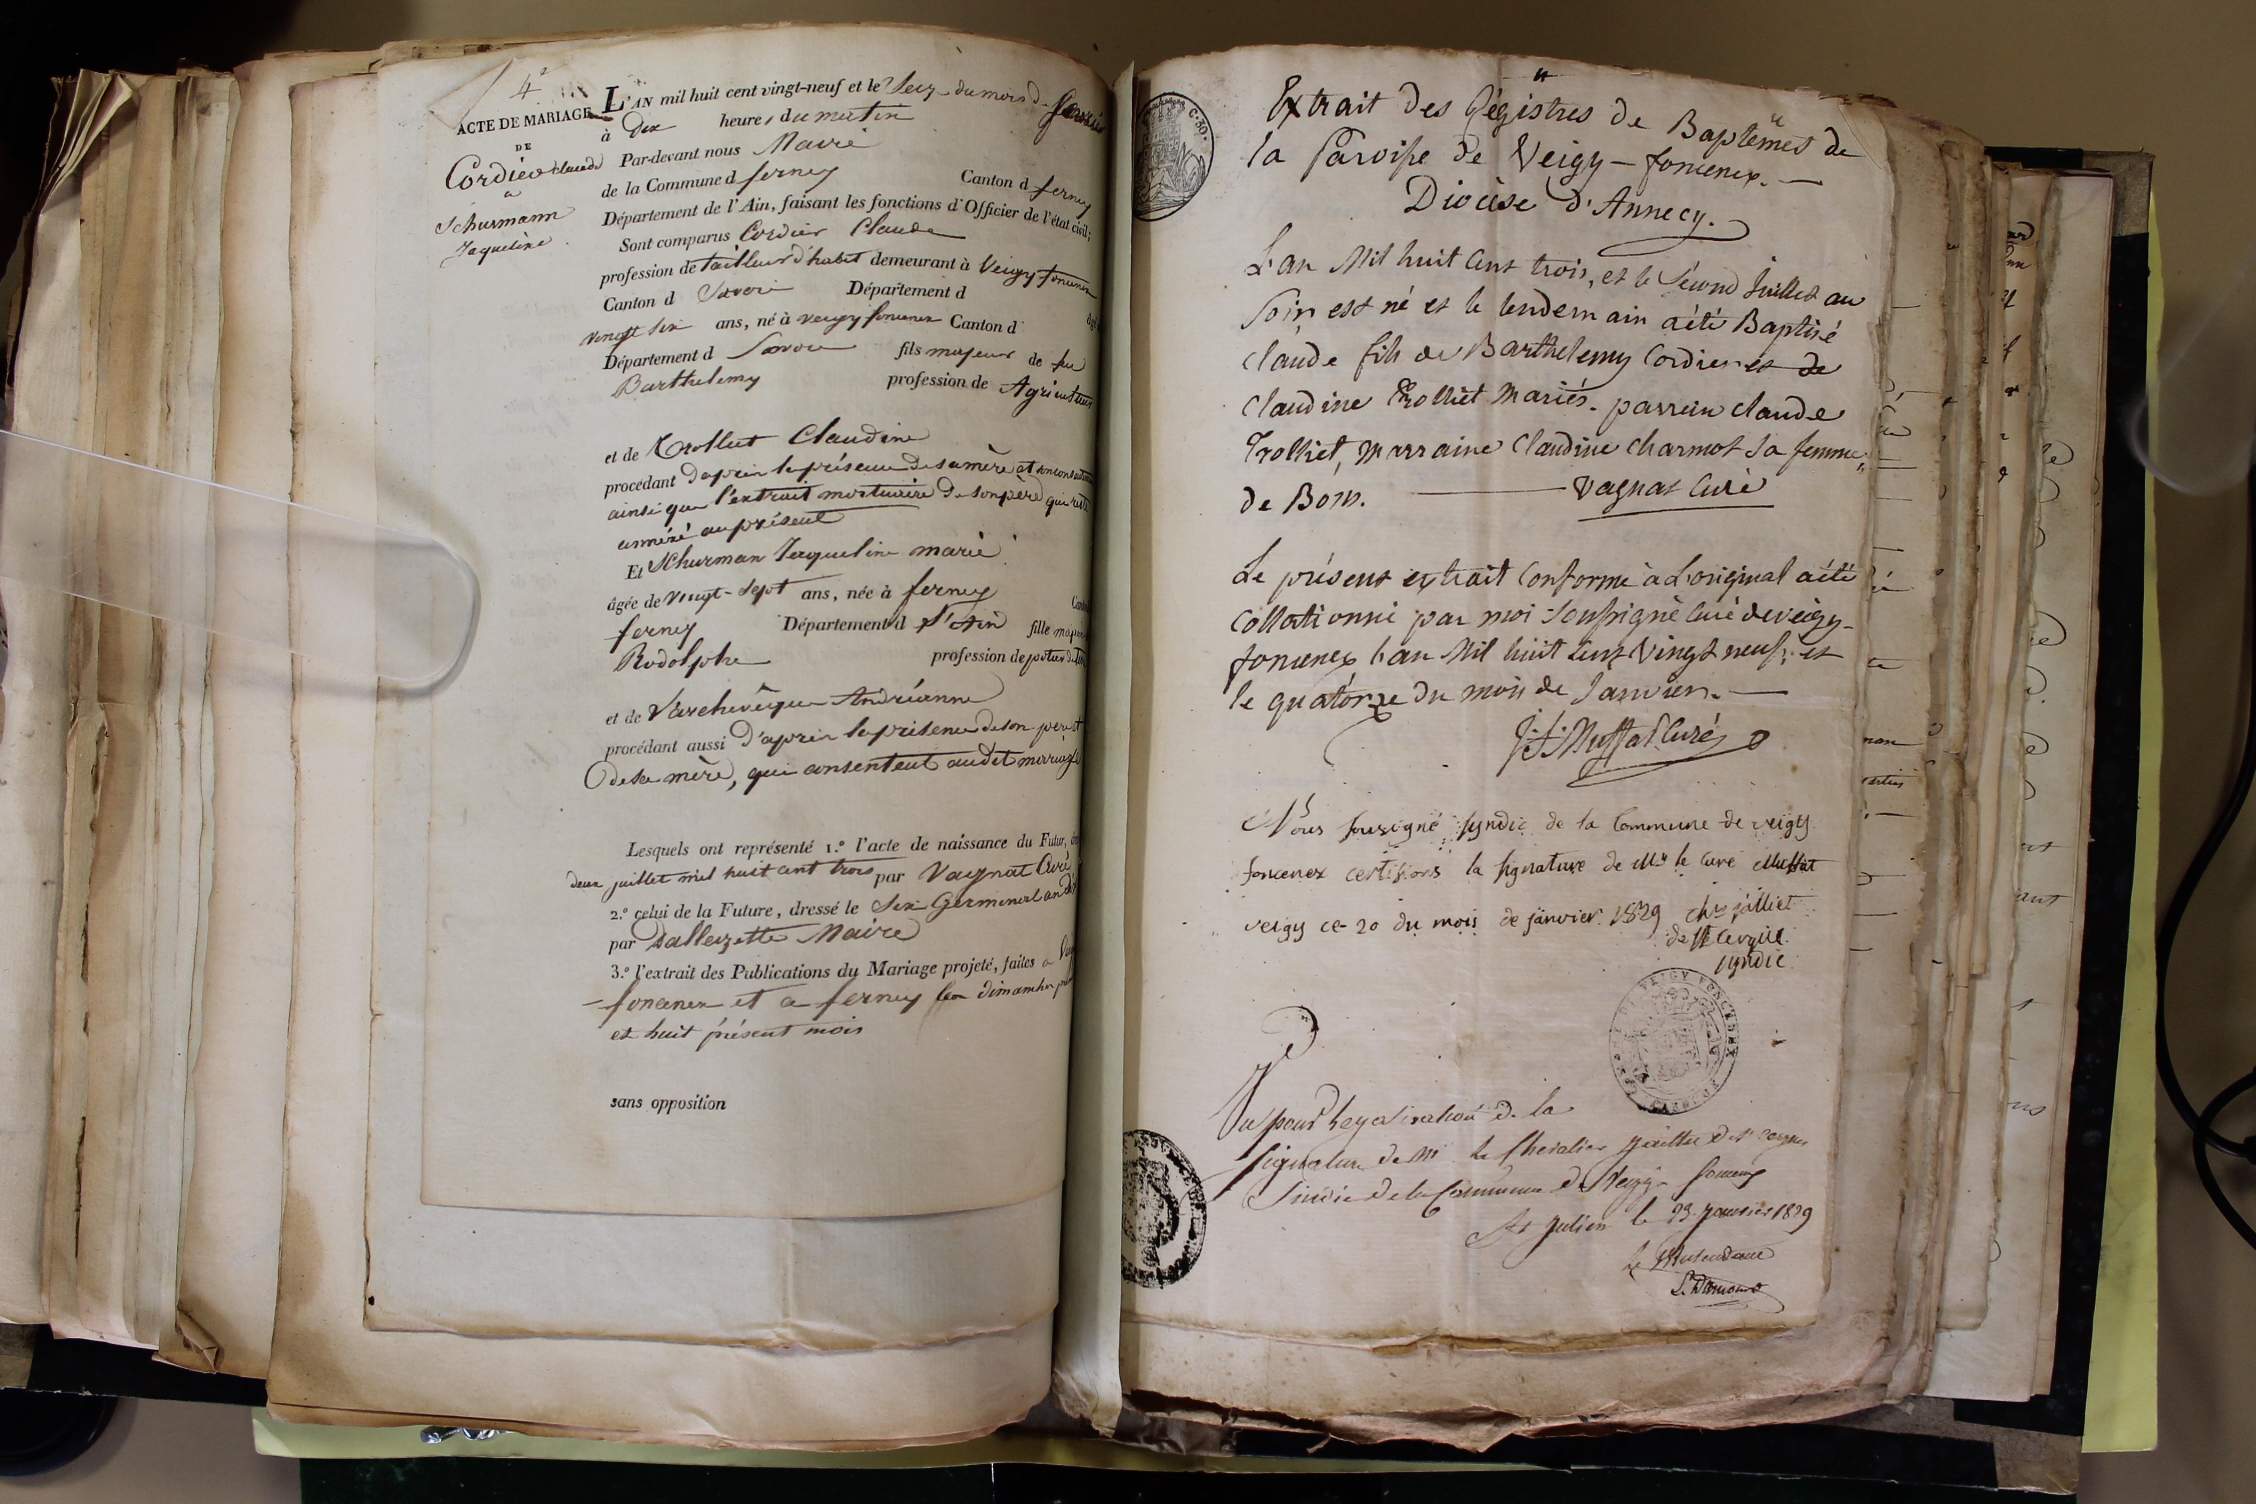 4e
ACTE DE MARIAGE
DE
Cordier Claude
a
Schurmann
Jaqueline
L'AN mil huit cent vingt-neuf et le Seize du mois de fevrier
à Dix heures du matin
Par-devant nous Maire
de la Commune d ferney Canton d ferney
Département de l'Ain, faisant les fonctions d'Officier de l'état civil;
Sont comparus Cordier Claude
profession de tailleur d'habit demeurant à Veigy foncenex
Canton d Savoie Département d
vingt six ans, né à veigy foncenex Canton d
Département d Savoie fils majeur de feu
Barthelemy profession de Agriculteur
et de Trolliet Claudine
procédant d'après la présence de sa mère et son consentement
ainsi que l'extrait mortuaire de son père qui reste
annéxé au présent
Et Schurman Jaqueline marie
âgée de vingt-sept ans, née à ferney
ferney Département d l'Ain fille majeure
Rodolphe profession de potier de terre
et de Larchevêque Andréanne
procédant aussi d'après la présence de son père et
de sa mère, qui consentent audit mariage
Lesquels ont représenté 1.º l'acte de naissance du Futur,
deux juillet mil huit cent trois par Vagnat Curé
2.º celui de la Future, dressé le Six Germinal an dix
par Dallerzette Maire
3.º l'extrait des Publications du Mariage projeté, faites a
foncenex et a ferney les dimanches
et huit présent mois
sans opposition
C. 30.
Extrait des Régistres de Baptêmes de
la Paroisse de Veigy - foncenex. —
Diocèse d'Annecy.
L'an Mil huit Cent trois, et le Sécond Juillet au
Soir est né et le lendemain a été Baptisé
Claude fils de Barthelemy Cordier et de
Claudine Trolliet Mariés. parrain claude
Trolliet, marraine Claudine charmot sa femme
de Bons. — Vagnat Curé
Le présent extrait Conforme à L'original a été
Collationné par moi Soussigné Curé de veigy-
foncenex l'an Mil huit Cent Vingt neuf, et
le quatorze du mois de Janvier. —
J. F. Muffat Curé
Nous sousigné syndic de la Commune de veigy
foncenex certifions la signature de Mr le Curé Muffat
veigy ce 20 du mois de janvier 1829 chr jailliet
de St Cergue
syndic
Vu pour Legalisation de la
signature de Mr le Chevalier Jaillet de St Cergues
Sindic de la Commune de Veigy - foncenex
St Julien le 23 janvier 1829
Le Intendant